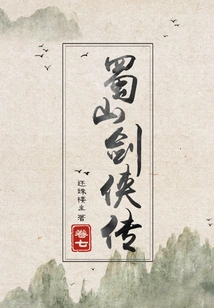 蜀山剑侠传
还珠楼主 著
卷七